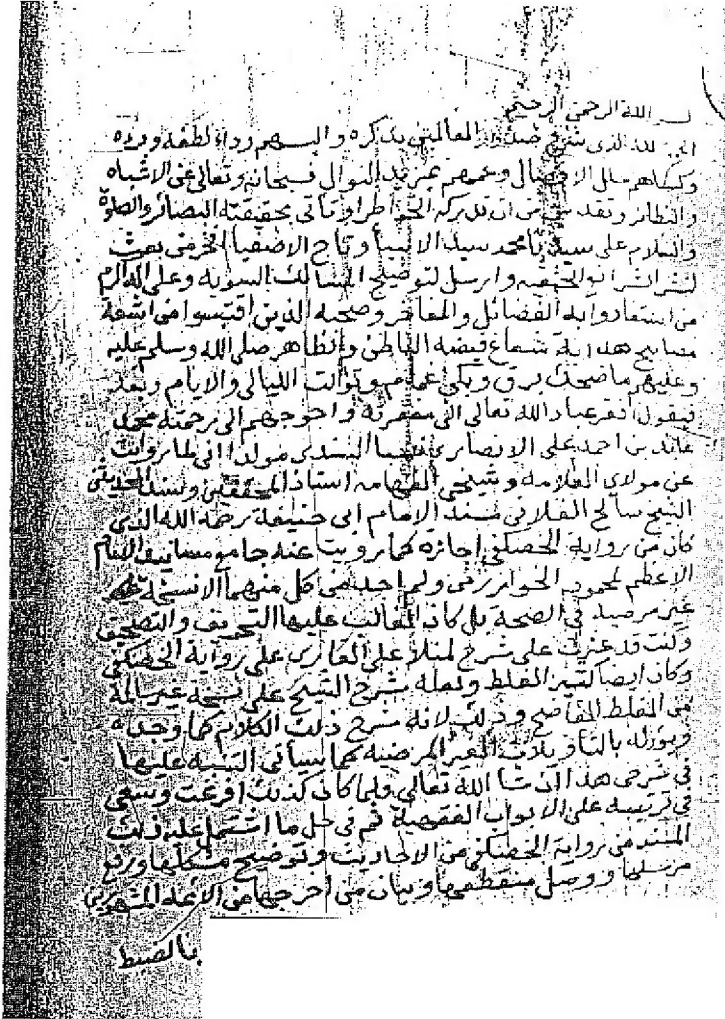 بسم الله الرحمن الرحيم
الحمد لله الذي شرح صدور العالمين بذكره والبسهم رداء لطفه وبره
وكساهم حلل الافضال وعمهم بمزيد النوال فسبحانه وتعالى عن الاشباه
والنظائر وتقدس من ان تدركه الخواطر او تاتي بحقيقته البصائر والصلوة
والسلام على سيدنا محمد سيد الانبيا وتاج الاصفيا الخ من بعث
لنشر الشرائع الحنيفيه وارسل لتوضيح المسالك السويه وعلى اله
من استنار وابه الفضائل والمفاخر وصحبه الذين اقتبسوا من اشعة
مصابيح هدايته شعاع فيضه الباطن والظاهر صلى الله وسلم عليه
وعليهم ما ضحك برق وبكى غمام وتوالت الليالي والايام وبعد
فيقول افقر عباد الله تعالى الى مغفرته واحوجهم الى رحمته محمد
عابد بن احمد علي الانصاري نسبا السندي مولدا اني لما رويت
عن مولاي العلامه وشيخي الفهامه استاذ المحققين وسند المحدثين
الشيخ صالح الفلاني مسند الامام ابي حنيفة رحمه الله الذي
كان من رواية الحصكفي اجازة كما رويت عنه جامع مسانيد الامام
الاعظم لمحمود الخوارزمي ولم اجد من كل منهما الا نسخة
غير مرضية في الصحة بل كان الغالب عليها التحريف والتصحيف
وكنت قد عثرت على شرح لمنلا علي القاري على رواية الحصكفي
وكان ايضا كثير الغلط ولعله شرح الشيخ على نسخة غير سالمة
من الغلط الفاضح وذلك لانه شرح ذلك الكلام كما وجده
ويؤوله بالتاويلات الغير المرضيه كما سياتي التنبيه عليها
في شرحي هذا ان شا الله تعالى ولما كان كذلك افرغت وسعى
في ترتيبه على الابواب الفقهية ثم في حل ما اشتمل عليه ذلك
المسند من رواية الحصكفي من الاحاديث وتوضيح مشكلها ورفع
مرسلها ووصل منقطعها وبيان من اخرجها من الائمة المشهورين
بالضبط